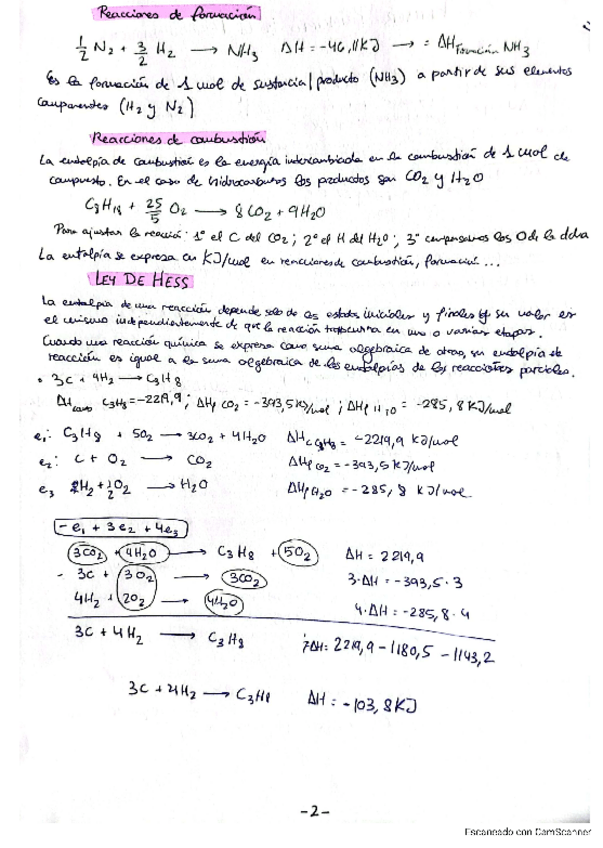 Reacciones de formación
1/2 N2 + 3/2 H2 → NH3 ΔH = -46,11KJ → = ΔHFormación NH3
Es la formación de 1 mol de sustancia/producto (NH3) a partir de sus elementos
componentes (H2 y N2)
Reacciones de combustión
La entalpía de combustión es la energía intercambiada en la combustión de 1 mol de
compuesto. En el caso de hidrocarburos los productos son CO2 y H2O
C8H18 + 25/5 O2 → 8CO2 + 9H2O
Para ajustar la reacción: 1º el C del CO2; 2º el H del H2O; 3º compensamos los O de la dcha
La entalpía se expresa en KJ/mol en reacciones de combustión, formación...
LEY DE HESS
La entalpía de una reacción depende solo de los estados iniciales y finales y su valor es
el mismo independientemente de que la reacción transcurra en una o varias etapas.
Cuando una reacción química se expresa como suma algebraica de otras, su entalpía de
reacción es igual a la suma algebraica de las entalpías de las reacciones parciales.
• 3C + 4H2 → C3H8
ΔHcomb C3H8 = -2219,9; ΔHf CO2 = -393,5 KJ/mol; ΔHf H2O = -285,8 KJ/mol
e1: C3H8 + 5O2 → 3CO2 + 4H2O ΔHc C3H8 = -2219,9 KJ/mol
e2: C + O2 → CO2 ΔHf CO2 = -393,5 KJ/mol
e3 H2 + 1/2 O2 → H2O ΔHf H2O = -285,8 KJ/mol
- e1 + 3e2 + 4e3
3CO2 + 4H2O → C3H8 + 5O2 ΔH = 2219,9
- 3C + 3O2 → 3CO2 3·ΔH = -393,5·3
4H2 + 2O2 → 4H2O 4·ΔH = -285,8·4
3C + 4H2 → C3H8 ΔH = 2219,9 - 1180,5 - 1143,2
3C + 4H2 → C3H8 ΔH = -103,8KJ
-2-
Escaneado con CamScanner